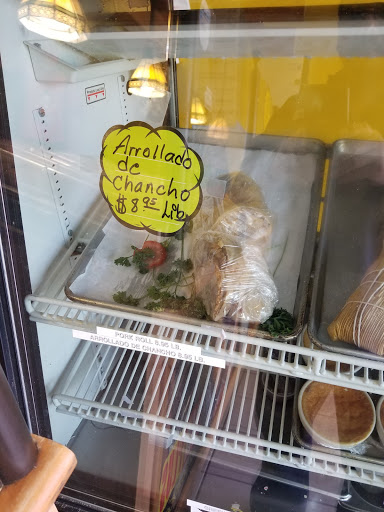 Arrollado
de
Chancho
$8.95 Lib
PORK ROLL 8.95 LB.
ARROLLADO DE CHANCHO 8.95 LB.